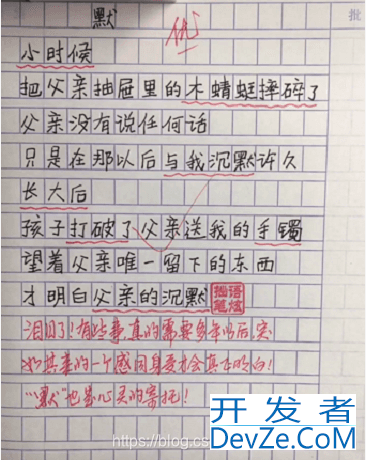 默
优
批
小时候
把父亲抽屉里的木蜻蜓摔碎了
父亲没有说任何话
只是在那以后与我沉默许久
长大后
孩子打破了父亲送我的手镯
望着父亲唯一留下的东西
才明白父亲的沉默
泪目了！有些事真的需要多年以后，突
如其来的一个感同身受才会真正明白！
“默”也是心灵的寄托！
https://blog.cs
开发者
DevZe.CoM